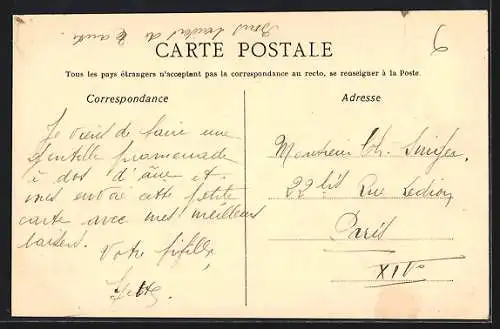 CARTE POSTALE
Tous les pays étrangers n'acceptent pas la correspondance au recto, se renseigner à la Poste.
Correspondance
Je viens de faire une
gentille promenade
à dos d'âne et
vous envoie cette petite
carte avec mes meilleurs
baisers.
Votre
Adresse
Monsieur Ch.
22 bis Rue Ledion
Paris
XIVe
6